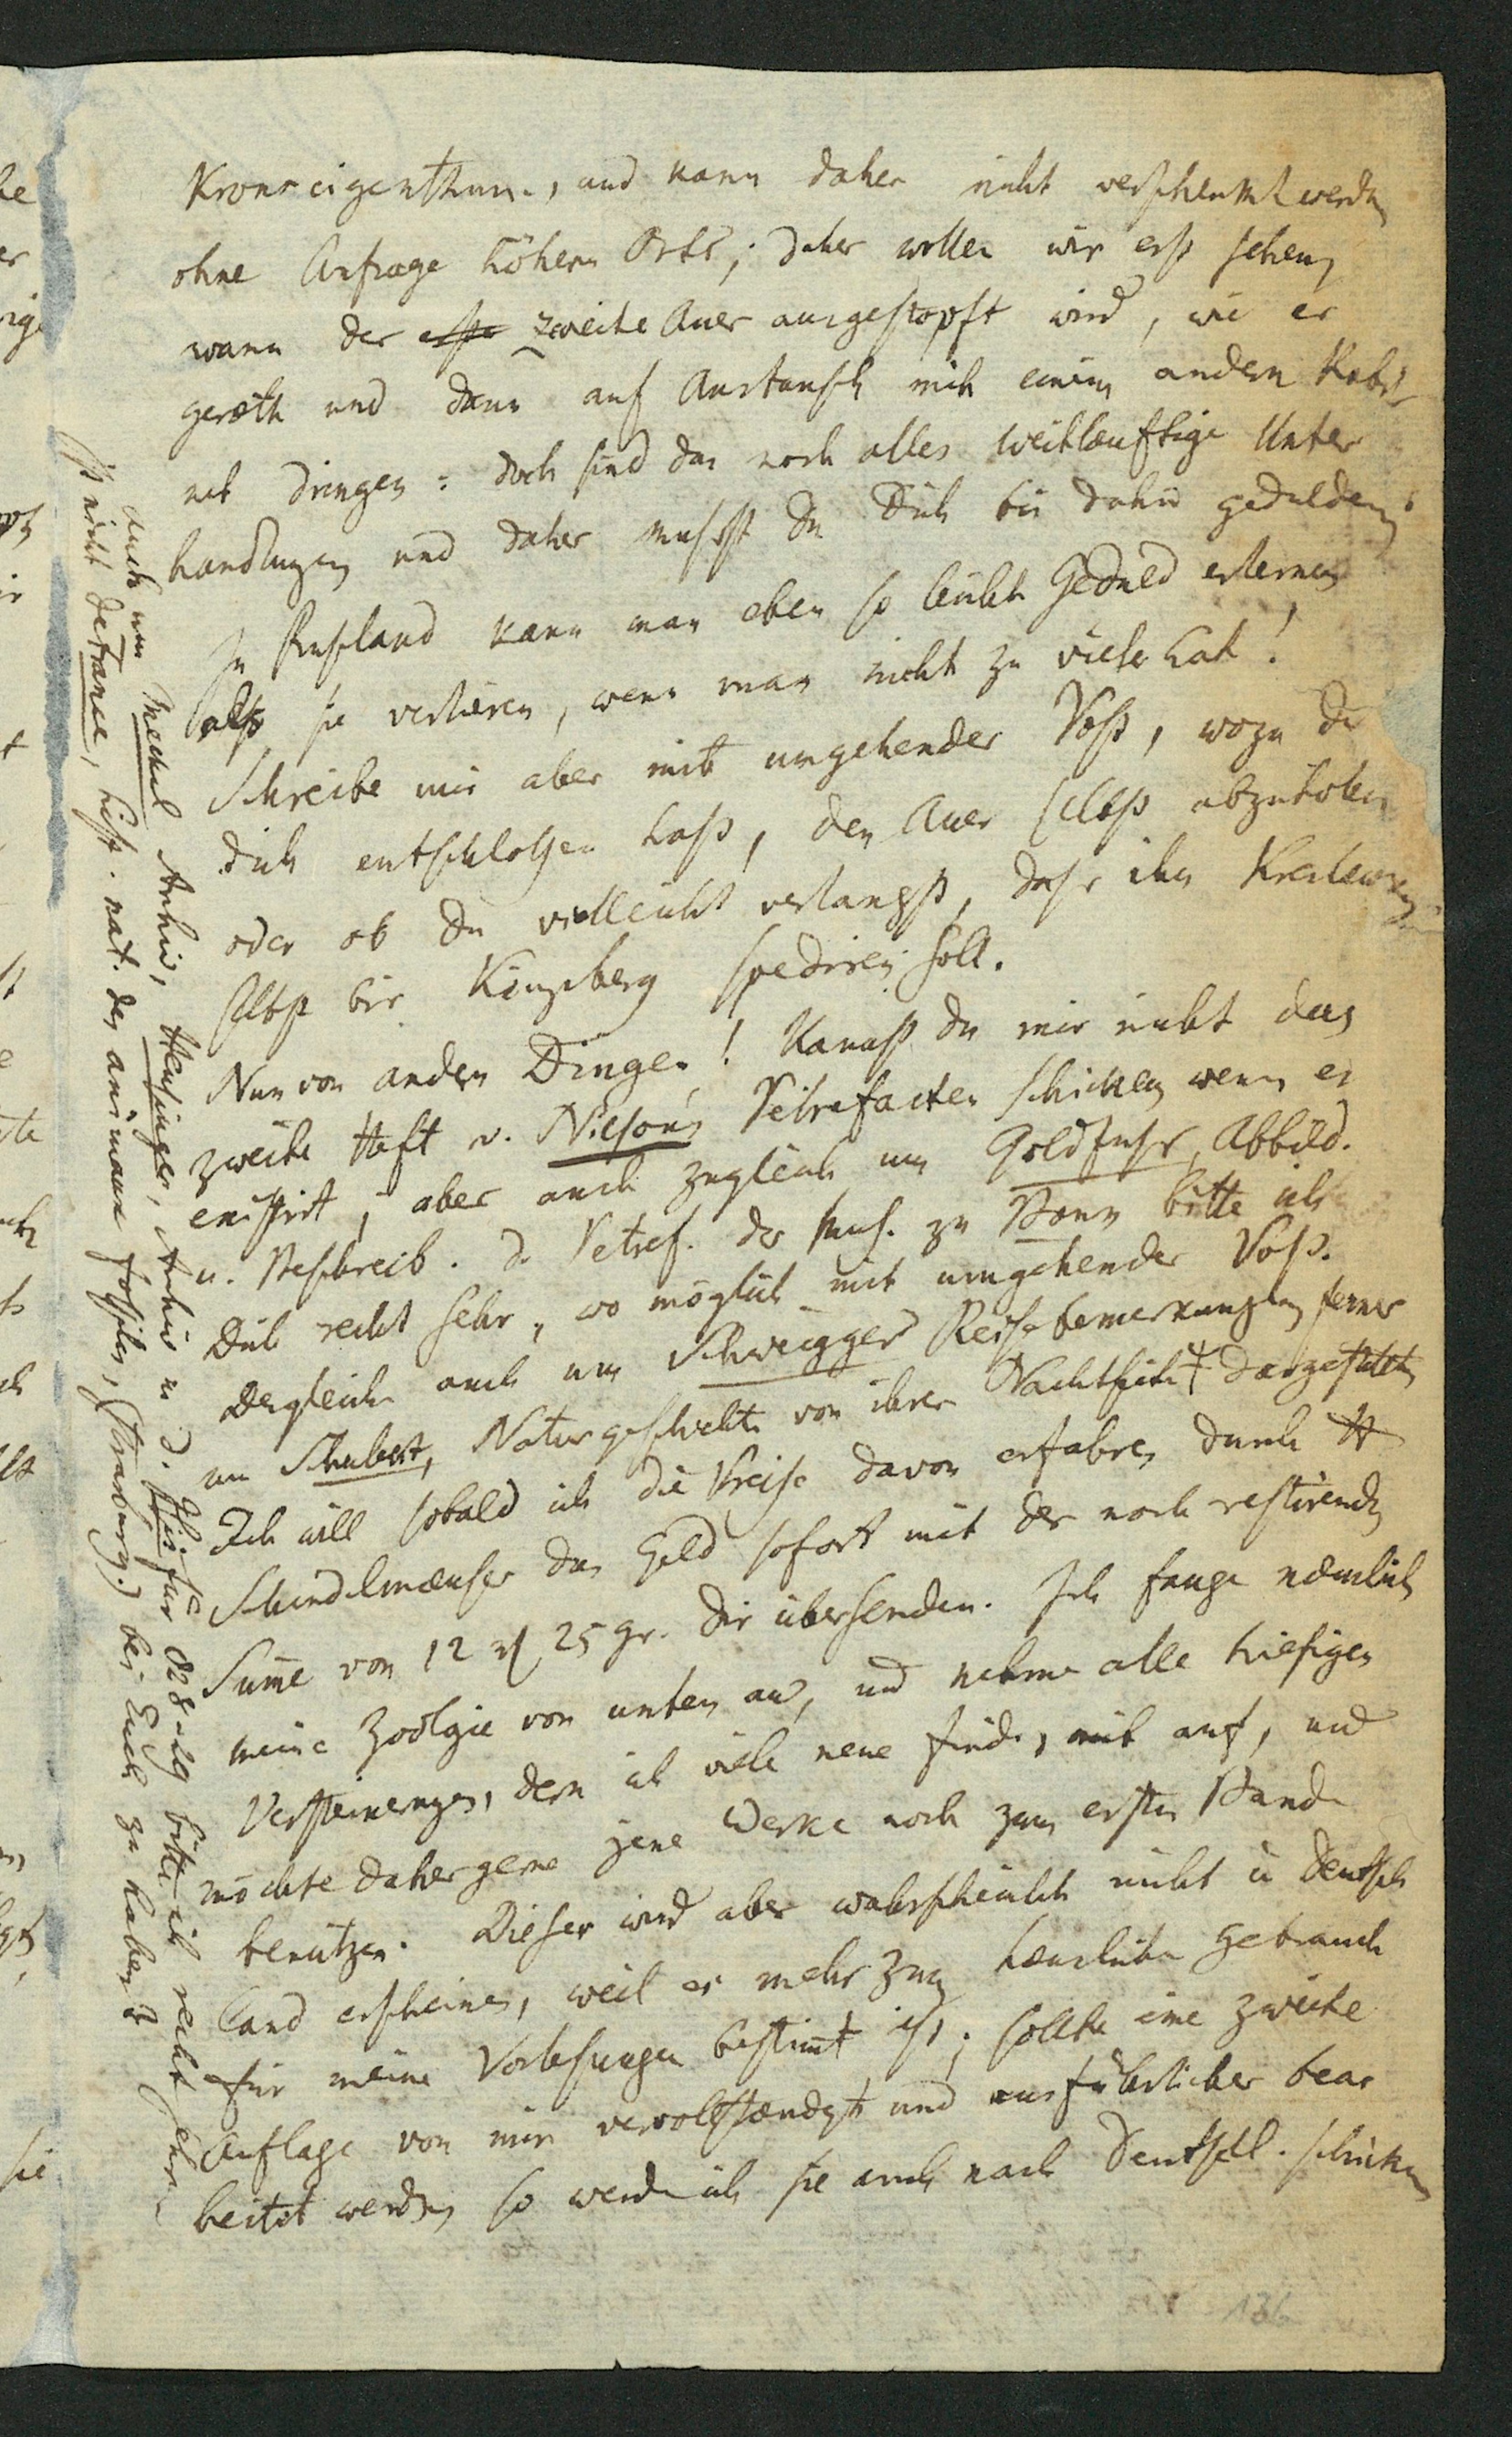 Kronseigenthum, und kann daher nicht verschenkt werden
ohne Anfrage höhern Orts; daher wollen wir erst sehen,
wann der erste zweite Auer ausgestopft wird, wie er
geräth und dann auf Austausch mit einem andern Kabi-
net dringen: doch sind das noch alles weitläuftige Unter
handlungen und daher musst du Dich bis dahin gedulden;
In Russland kann man eben so leicht Geduld erlernen
als sie verlieren, wenn man nicht zu viele hat!
Schreibe mir aber mit umgehender Post, wozu du
dich entschlossen hast, den Auer selbst abzuholen
oder ob du vielleicht verlangst, dass ihn
selbst bis Königsberg spediren soll.
Nun von andern Dingen! Kannst du mir nicht das
zweite Heft v. Nilson's Petrefacten schicken wenn es
existirt; aber auch zugleich um Goldfuss Abbild.
u. Beschreib. d. Petref. des Mus. zu Bonn bitte ich
Dich recht sehr, wo möglich mit umgehender Post.
Desgleichen auch um Schweigger Reisebemerkungen ferner
um Schubert, Naturgeschichte von ihrer Nachtseite dargestellt
Ich will sobald ich die Preise davon erfahre, durch H
Schindelmeuser das Geld sofort mit der noch restirenden
Summe von 12 rl 25 gr. dir übersenden. Ich fange nämlich
meine Zoologie von unten an, und nehme alle hiesigen
Versteinerungen, deren ich viele neue finde, mit auf, und
möchte daher gerne jene Werke noch zum ersten Bande
benützen. Dieser wird aber wahrscheinlich nicht in Deutsch
land erscheinen, weil er mehr zum häuslichen Gebrauch
für meine Vorlesungen bestimmt ist; sollte eine zweite
Auflage von mir vervollständigt und ausführlicher bear
beitet werden, so werde ich sie auch nach Deutschl. schicken
Auch um Meckel Archiv, Heusinger, Archiv u. d. Isis für 828-29 bitte ich recht sehr.
Ist nicht Defrance, hist. nat. des animaux fossiles, (Strasburg.) bei Euch zu haben?
136